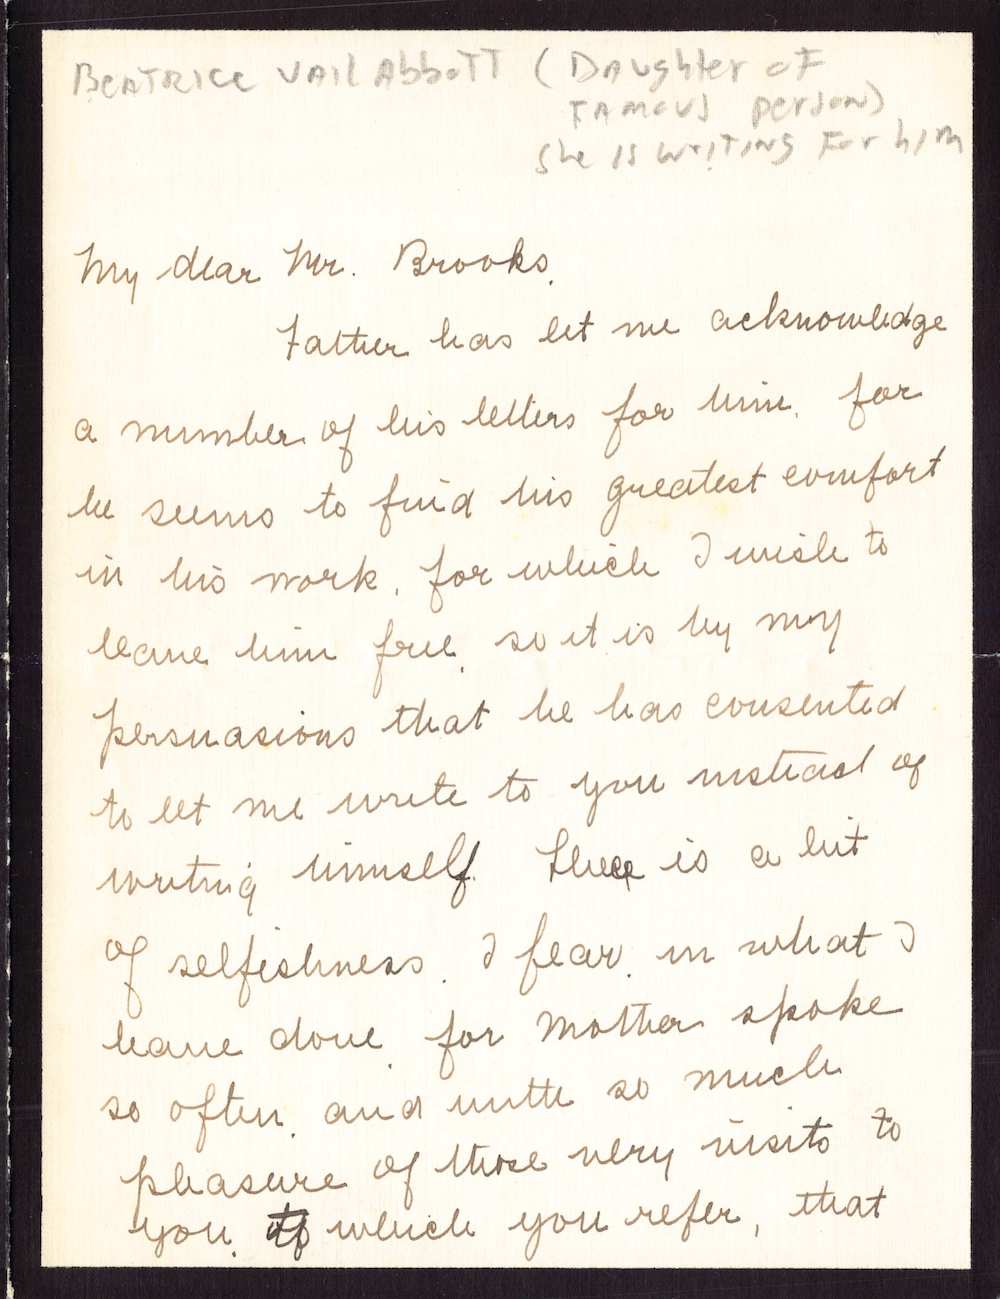 BEATRICE VAIL Abbott (Daughter of
Famous person)
She is writing for him
My dear Mr. Brooks,
Father has let me acknowledge
a number of his letters for him, for
he seems to find his greatest comfort
in his work, for which I wish to
leave him free, so it is by my
persuasions that he has consented
to let me write to you instead of
writing himself. There is a bit
of selfishness, I fear, in what I
have done, for Mother spoke
so often, and with so much
pleasure of those very visits to
you, to which you refer, that